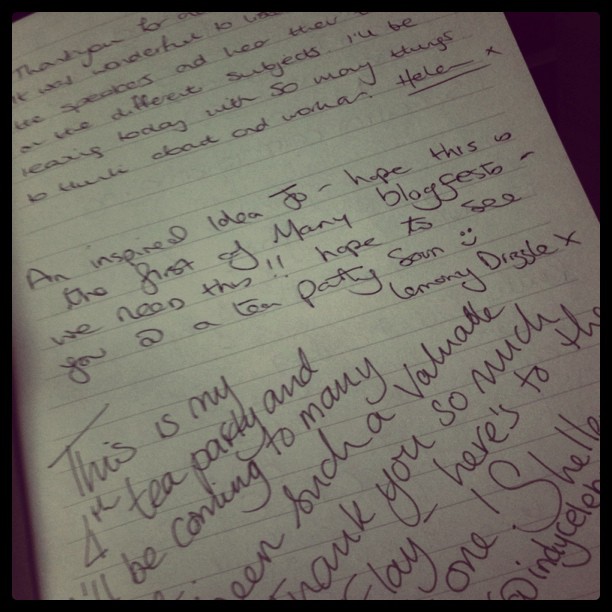 Thank you for
It was wonderful to
the speakers and hear their
on the different subjects. I'll be
leaving today with so many things
to think about and work on. Helen x
An inspired Idea Jo - hope this is
the first of Many blogfests -
we need this!! hope to see
you @ a tea party soon :)
Lemony Drizzle x
This is my
4th tea party and
I'll be coming to many
been such a valuable
Thank you so much
Clay, here's to the
one! Shelle
@indyceleb